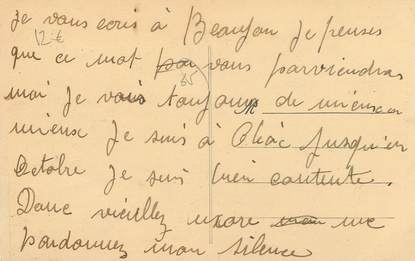 je vous ecris à Beaujon Je penses
12 €
que ce mot pou vous parviendras
65
moi Je vais toujours de mieux en
mieux Je suis à Chac Jusqu'en
Octobre Je suis bien contente.
Donc vieillez me
pardonnez mon silence